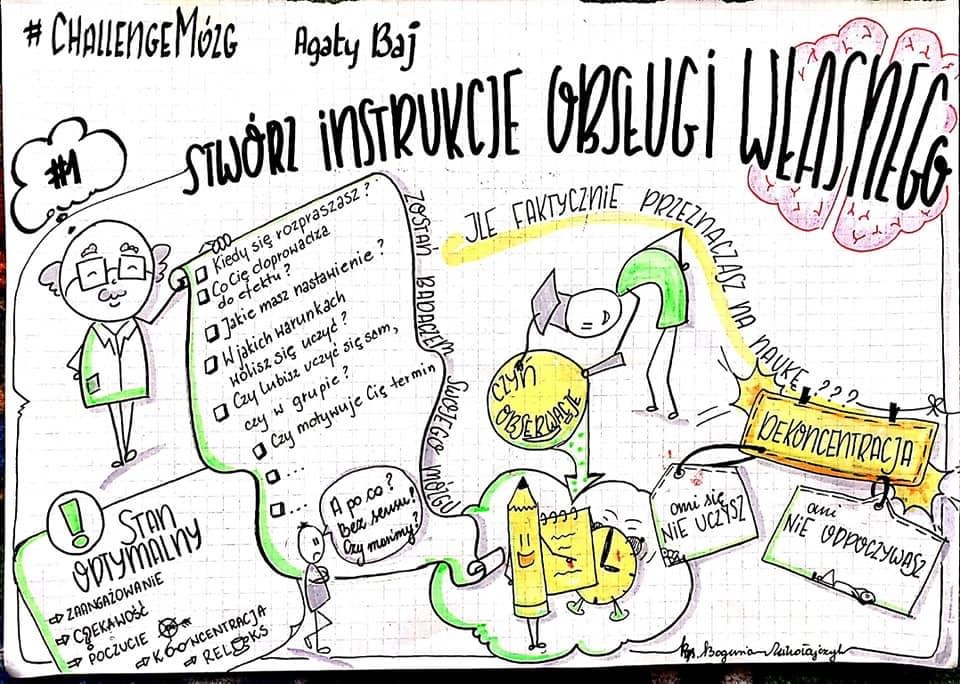 #CHALLENGEMÓZG
Agaty Baj
STWÓRZ INSTRUKCJE OBSŁUGI WŁASNEGO
#1
Kiedy się rozpraszasz?
Co Cię doprowadza
do efektu?
Jakie masz nastawienie?
W jakich warunkach
wolisz się uczyć?
Czy lubisz uczyć się sam,
czy w grupie?
Czy motywuje Cię termin
...
...
ZOSTAŃ BADACZEM SWOJEGO MÓZGU
ILE FAKTYCZNIE PRZEZNACZASZ NA NAUKĘ???
CZYŃ
OBSERWACJE
DEKONCENTRACJA
ani się
NIE UCZYSZ
ani
NIE ODPOCZYWASZ
A po co?
Bez sensu!
Czy musimy?
!
STAN
OPTYMALNY
⇨ ZAANGAŻOWANIE
⇨ CIEKAWOŚĆ
⇨ POCZUCIE
⇨ KONCENTRACJA
⇨ RELAKS
Rys. Bogumia Mikołajczyk